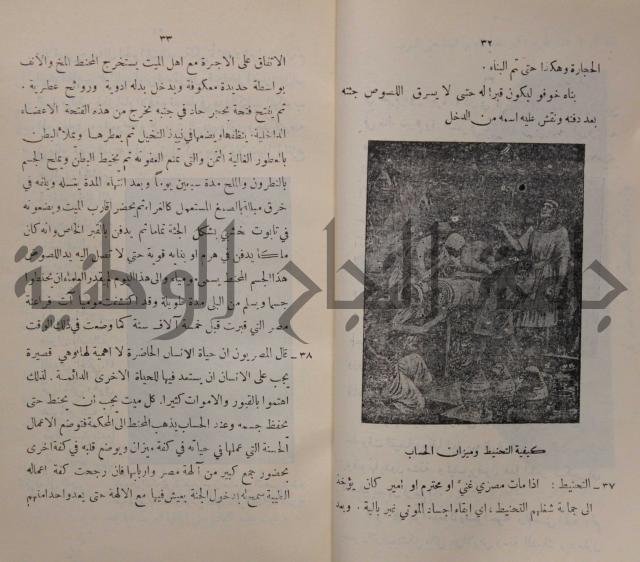 ٣٢
الحجارة وهكذا حتى تم البناء .
بناه خوفو ليكون قبرا له حتى لا يسرق اللصوص جثته
بعد دفنه ونقش عليه اسمه من الداخل
كيفية التحنيط وميزان الحساب
٣٧ ــ التحنيط : اذا مات مصري غني او محترم او امير كان يؤخذ
الى جماعة شغلهم التحنيط ، اي ابقاء اجساد الموتي غير بالية . وبعد
٣٣
الاتفاق على الاجرة مع اهل الميت يستخرج المحنط المخ والأنف
بواسطة حديدة معكوفة ويدخل بدله ادوية وروائح عطرية .
ثم يفتح فتحة بحجر حاد في جنبه يخرج من هذه الفتحة الاعضاء
الداخلية . ينظفها ويضعها في نبيذ النخيل ثم يعطرها ويملأ البطن
بالعطور الغالية الثمن والتي تمنع العفونة ثم يخيط البطن ويملح الجسم
بالنطرون والملح مدة سبعين يوماً وبعد انتهاء المدة يغسله ويلفه في
خرق مبللة بالصمغ المستعمل كالغراء ثم يحضر اقارب الميت ويضعونه
في تابوت خشبي بشكل الجثة تماما ثم يدفن بالقبر الخاص وانه كان
ملكا يدفن في هرم او بناية قوية حتى لا تصل اليه يد اللصوص
هذا الجسم المحنط يسمى مومياء والى هذا اليوم لم يقدر العلماء ان يحنطوا
جسما ويسلم من البلى مدة طويلة وقد اكتشفت موميات فراعنة
مصر التي قبرت قبل خمسة آلاف سنة كما وضعت في ذلك الوقت
٣٨ ــ قال المصريون ان حياة الانسان الحاضرة لا اهمية لها وهي قصيرة
يجب على الانسان ان يستعد فيها للحياة الاخرى الدائمة . لذلك
اهتموا بالقبور والاموات كثيرا . كل ميت يجب أن يحنط حتى
يحفظ جسمه وعند الحساب يذهب المحنط الى المحكمة فتوضع الاعمال
الحسنة التي عملها في حياته في كفة ميزان ويوضع قلبه في كفة اخرى
بحضور جمع كبير من آلهة مصر واربابها فان رجحت كفة اعماله
الطيبة سمح له بدخول الجنة يعيش فيها مع الآلهة حتى يعد واحد منهم
جامعة النجاح الوطنية